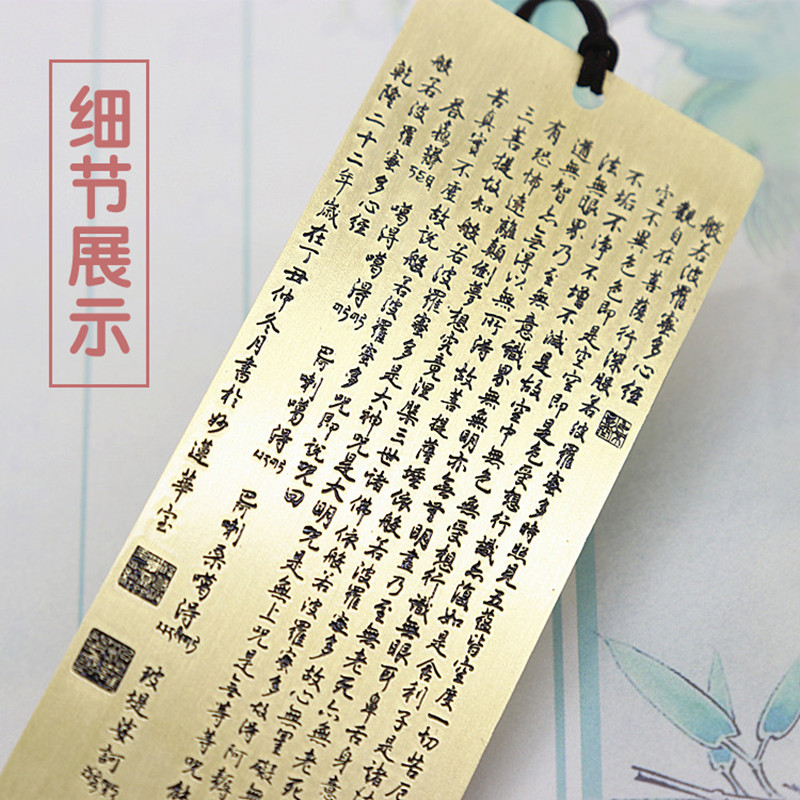 细节展示
般若波羅蜜多心经
觀自在菩薩行深般若波羅蜜多時照見五蘊皆空度一切苦厄
空不異色色即是空空即是色受想行識亦復如是舍利子是诸
不垢不净不增不減是故空中無色無受想行識無眼耳鼻舌身意
法無眼界乃至無意識界無無明亦無無明盡乃至無老死亦無老死
道無智亦無得以無所得故菩提薩埵依般若波羅蜜多故心無罣礙
有恐怖遠離顛倒夢想究竟涅槃三世諸佛依般若波羅蜜多故得阿耨
三菩提故知般若波羅蜜多是大神咒是大明咒是無上咒是無等等咒能
苦真實不虛故說般若波羅蜜多咒即說咒曰
噶得 噶得 喇噶得 喇桑噶得 提娑訶
般若波羅蜜多心经
乾隆二十二年歲在丁丑仲冬月書於妙蓮華室